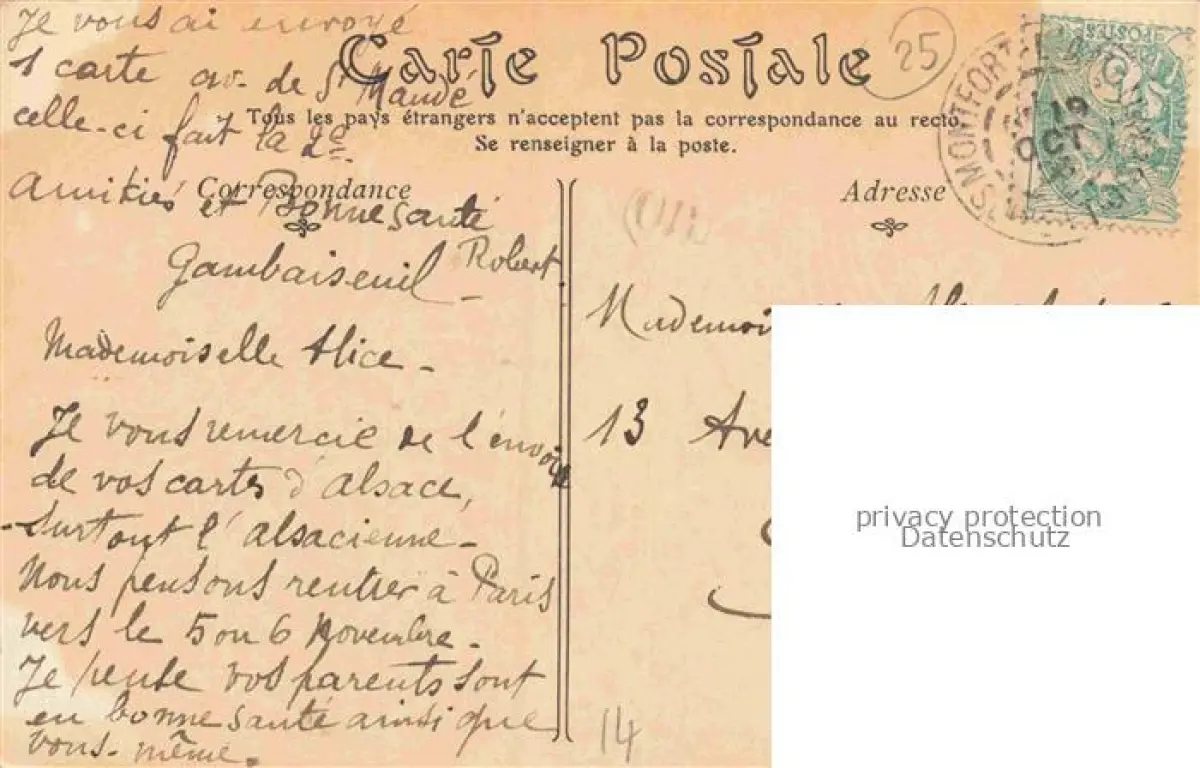 Je vous ai envoyé
1 carte av. de St Mandé
celle-ci fait la 2e
Amitiés et Bonne santé
Robert
Carte Postale
25
Tous les pays étrangers n'acceptent pas la correspondance au recto.
Se renseigner à la poste.
Correspondance
Gambaiseuil
Mademoiselle Alice -
Je vous remercie de l'envoie
de vos cartes d'Alsace,
- surtout l'alsacienne -
Nous pensons rentrer à Paris
vers le 5 ou 6 Novembre -
Je pense vos parents sont
en bonne santé ainsi que
vous-même.
Adresse
POSTES
MONTFORT-L'AMAURY
19
OCT
Mademoi
13 Ave
14
privacy protection
Datenschutz